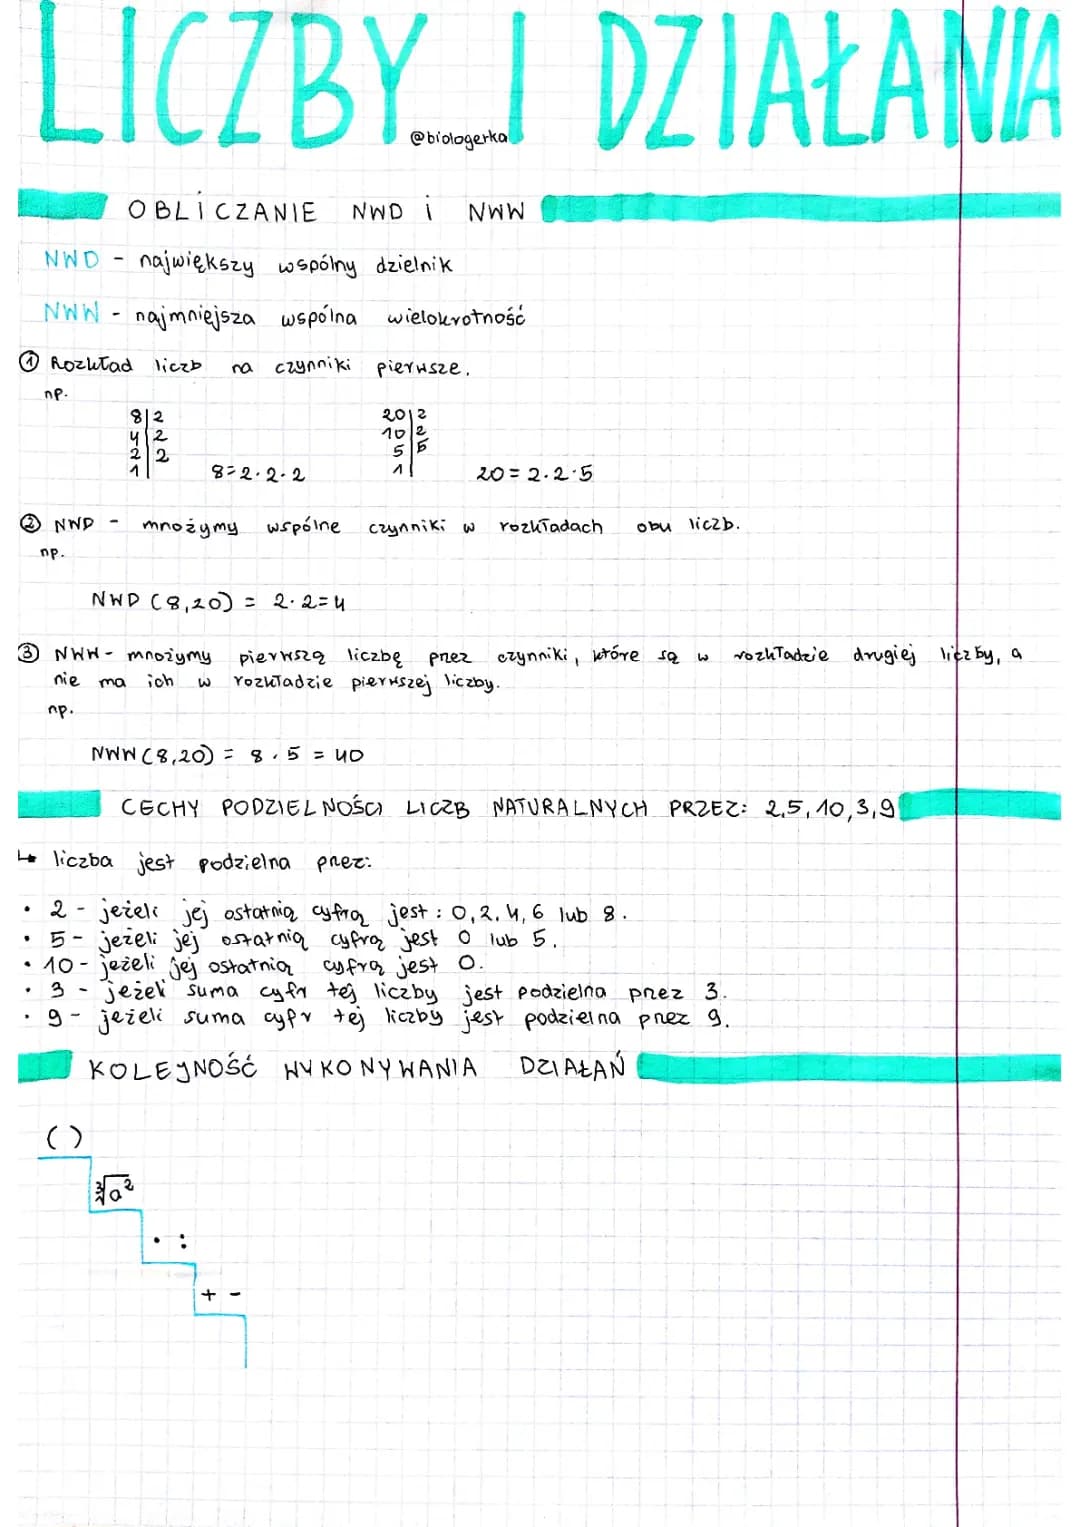 LICZBY I DZIAŁANIA
@biologerka
OBLICZANIE NWD i NWW
NWD - największy wspólny dzielnik
NWW - najmniejsza wspólna wielokrotność
① Rozkład liczb na czynniki pierwsze.
np.
8|2 20|2
4|2 10|2
2|2 5|5
1| 1|
8=2·2·2 20=2·2·5
② NWD - mnożymy wspólne czynniki w rozkładach obu liczb.
np.
NWD (8,20) = 2·2=4
③ NWW - mnożymy pierwszą liczbę przez czynniki, które są w rozkładzie drugiej liczby, a
nie ma ich w rozkładzie pierwszej liczby.
np.
NWW (8,20) = 8·5 = 40
CECHY PODZIELNOŚCI LICZB NATURALNYCH PRZEZ: 2,5,10,3,9
↳ liczba jest podzielna przez:
• 2 - jeżeli jej ostatnią cyfrą jest: 0,2,4,6 lub 8.
• 5 - jeżeli jej ostatnią cyfrą jest 0 lub 5.
• 10 - jeżeli jej ostatnią cyfrą jest 0.
• 3 - jeżeli suma cyfr tej liczby jest podzielna przez 3.
• 9 - jeżeli suma cyfr tej liczby jest podzielna przez 9.
KOLEJNOŚĆ WYKONYWANIA DZIAŁAŃ
( )
∛a²
· :
+ -